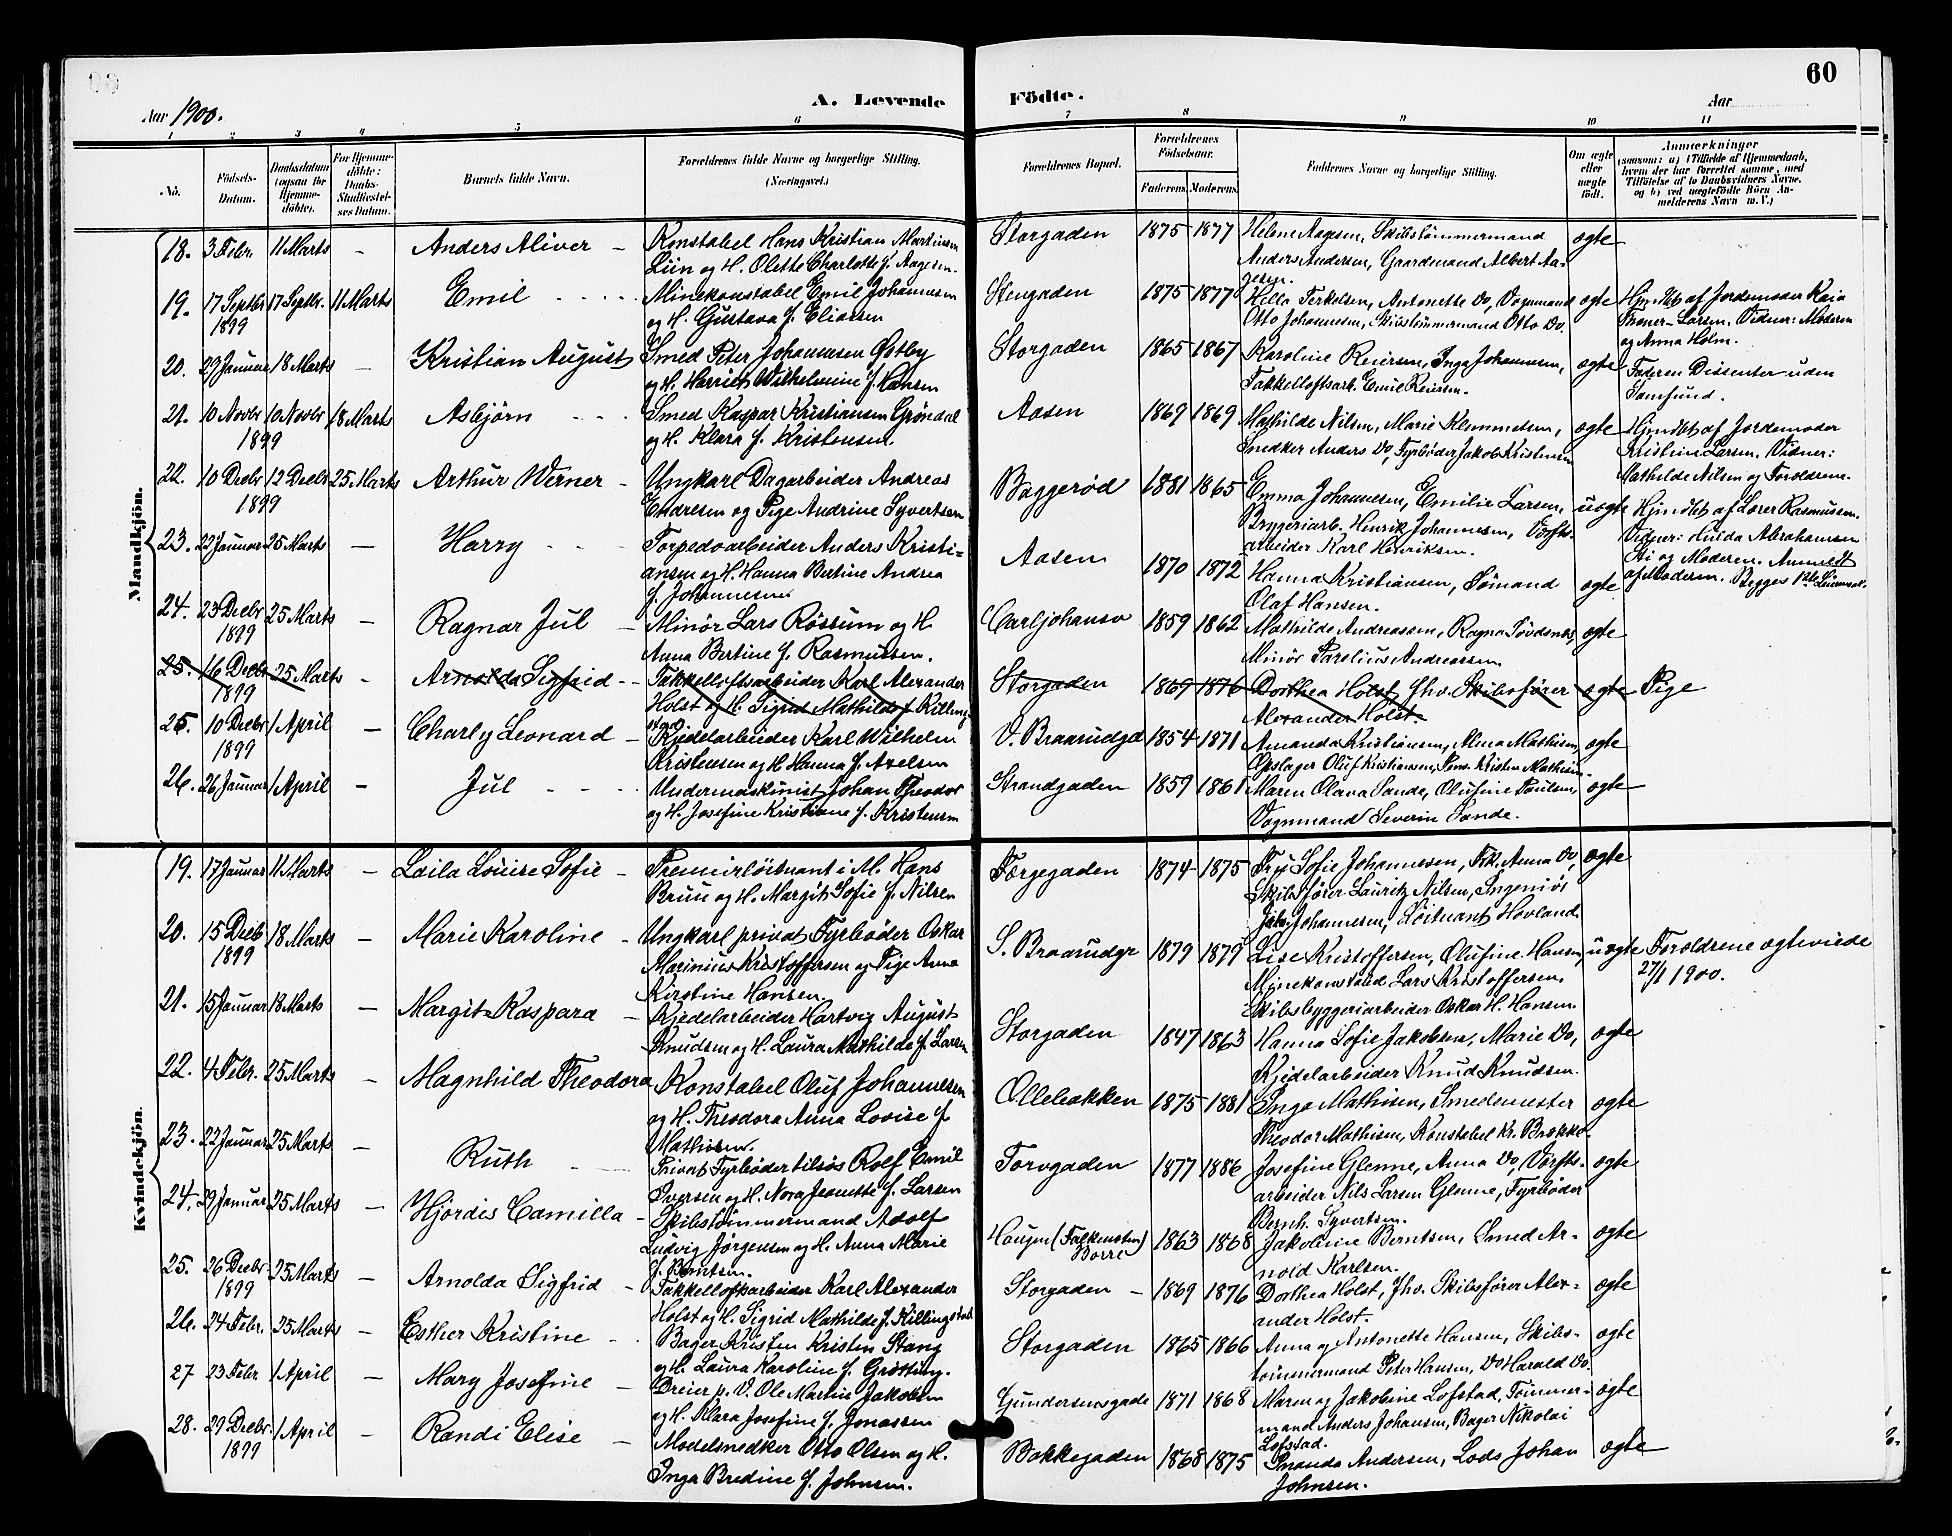 60
Aar 1900.
A. Levende Födte.
Aar
1 2 3 4 5 6 7 8 9 10 11
No.
Födsels-Datum.
Daabsdatum (ogsaa for Hjemme-döbte).
For Hjemme-döbte: Daabs-Stadfæstel-ses Datum.
Barnets fulde Navn.
Forældrenes fulde Navne og borgerlige Stilling. (Næringsvei.)
Forældrenes Bopæl.
Forældrenes Födselsaar.
Faderens. Moderens.
Faddernes Navne og borgerlige Stilling.
Om ægte eller uægte födt.
Anmærkninger
(saasom: a) i Tilfælde af Hjemmedaab, hvem der har forrettet samme, med Tilföielse af to Daabsvidners Navne, og b) ved uægtefödte Börn An-melderens Navn m. V.)
Mandkjön.
18. 3 Febr. 11 Marts - Anders Aliver - Konstabel Hans Kristian Martinsen
Liin og H. Olette Charlotte f. Aagesen.
Storgaden 1875 1877 Helene Aagesen, Skibstömmermand
Anders Andersen, Gaardmand Albert Aa-
gesen. ægte
19. 17 Septbr. 1899 17 Septbr. 11 Marts Emil Minekonstabel Emil Johannesen
og H. Gustava f. Eliassen
Stengaden 1875 1877 Hilla Terkelsen, Antonette Do, Vognmand
Otto Johannesen, Skibstömmermand Otto Do. ægte
Hjm.dbt af Jordemoder Kaia
Thoner-Larsen. Vidner: Moderen
og Anna Holm.
20. 29 Januar 18 Marts - Kristian August Smed Peter Johannesen Østby
og H. Harriet Wilhelmine f. Hansen
Storgaden 1865 1867 Karoline Reiersen, Inga Johannesen,
Takkelloftsarb. Emil Reiersen. ægte
Faderen Dissenter uden
Samfund.
21. 10 Novbr 1899 10 Novbr 18 Marts Asbjörn Smed Kaspar Kristiansen Gröndal
og H. Klara f. Kristensen
Aasen 1869 1869 Mathilde Nilsen, Marie Klemmetsen,
Snedker Anders Do, Fyrböder Jakob Kristensen ægte
Hjmdbt af Jordemoder
Kristine Larsen. Vidner:
Mathilde Nilsen og Forældrene.
22. 10 Decbr 1899 12 Decbr 25 Marts Arthur Werner - Ungkarl Dagarbeider Andreas
Endresen og Pige Andrine Syvertsen
Baggeröd 1881 1865 Emma Johannesen, Emilie Larsen,
Bryggeriarb. Henrik Johannesen, Verfts-
arbeider Karl Henriksen. uægte
Hjmdbt af Lærer Rasmussen.
Vidner: Hulda Abrahamsen
Sti og Moderen. Anmeldt
af Moderen. Begges 1ste Leiermaal.
23. 22 Januar 25 Marts - Harry Torpedoarbeider Anders Kristi-
ansen og H. Hanna Bertine Andrea
f. Johannesen
Aasen 1870 1872 Hanna Kristiansen, Sömand
Olaf Hansen. ægte
24. 23 Decbr 1899 25 Marts - Ragnar Jul - Minör Lars Rössum og H.
Anna Bertine f. Rasmussen.
Carljohansv 1859 1862 Mathilde Andreassen, Ragna Tövdsnes,
Minör Carolius Andreassen ægte
25. 16 Decbr 1899 25 Marts - Arnolda Sigfrid - Takkelloftsarbeider Karl Alexander
Holst og H. Sigrid Mathilde f. Killing-
stad
Storgaden 1869 1876 Dorthea Holst, fhv. Skibsförer
Alexander Holst. ægte Pige
25. 10 Decbr 1899 1 April - Charly Leonard - Kjedelarbeider Karl Wilhelm
Kristensen og H Hanna f. Axelsen
V. Braarudgd 1854 1871 Amanda Kristiansen, Alma Mathisen,
Opslager Oluf Kristiansen, Kristen Mathisen. ægte
26. 26 Januar 1 April - Jul Undermaskinist Johan Theodor
og H. Josefine Kristiane f. Kristensen
Strandgaden 1859 1861 Maren Olava Sande, Olufine Paulsen,
Vognmand Severin Sande. ægte
Kvindekjön.
19. 17 Januar 11 Marts - Laila Louise Sofie - Premierlöitnant i M. Hans
Bruu og H. Margit Sofie f. Nilsen
Færgegaden 1874 1875 Fru Sofie Johannesen, Frk. Anna Do,
Skibsförer Lauritz Nilsen, Ingeniör
Johannesen, Löitnant Hovland. ægte
20. 15 Decb 1899 18 Marts - Marie Karoline - Ungkarl privat Fyrböder Oskar
Marinius Kristoffersen og Pige Anna
Kirstine Hansen.
S. Braarudgr 1879 1879 Lise Kristoffersen, Olufine Hansen,
Minekonstabel Lars Kristoffersen,
Skibsbyggeriarbeider Oskar H. Hansen. uægte
Forældrene ægteviede
27/1 1900.
21. 15 Januar 18 Marts - Margit Kaspara - Kjedelarbeider Hartvig August
Knudsen og H. Laura Mathilde f. Larsen
Storgaden 1847 1863 Hanna Sofie Jakobsen, Marie Do,
Kjedelarbeider Knud Knudsen. ægte
22. 4 Febr. 25 Marts - Magnhild Theodora Konstabel Oluf Johannesen
og H. Theodora Anna Lovise f.
Mathisen.
Ollebakken 1875 1881 Inga Mathisen, Smedemester
Theodor Mathisen, Konstabel Kr. Brække. ægte
23. 22 Januar 25 Marts - Ruth Privat Fyrböder tilsös Rolf Emil
Iversen og H. Nora Jeanette f. Larsen
Torvgaden 1877 1886 Josefine Glenne, Anna Do, Verfts-
arbeider Nils Larsen Glenne, Fyrböder
Bernh. Syvertsen. ægte
24. 29 Januar 25 Marts - Hjördis Camilla - Skibstömmermand Adolf
Ludvig Jörgensen og H. Anna Marie
f. Berntsen.
Haugen (Falkensten) Borre 1863 1868 Jakobine Berntsen, Smed Ar-
nold Karlsen. ægte
25. 26 Decbr 1899 25 Marts - Arnolda Sigfrid - Takkelloftsarbeider Karl Alexander
Holst og H. Sigrid Mathilde f. Killingstad
Storgaden - 1869 1876 Dorthea Holst, fhv. Skibsförer Alex-
ander Holst. ægte
26. 24 Febr. 25 Marts - Esther Kristine Bager Kristen Kristen Stang
og H. Laura Karoline f. Grötting.
Storgaden 1865 1866 Anna og Antonette Hansen, Skibs-
tömmermand Peter Hansen, Do Harald Do. ægte
27 23 Febr 1 April - Mary Josefine - Dreier p. V. Ole Martin Jakobsen
og H. Klara Josefine f. Jonassen
Gundersensgade 1871 1868 Maren og Jakobine Lofstad, Tömmer-
mand Anders Johansen, Bager Nikolai
Lofstad. ægte
28. 29 Decbr. 1899 1 April - Randi Elise - Modelsnedker Otto Olsen og H.
Inga Bredine f. Johnsen.
Bakkegaden 1868 1875 Amanda Andersen, Lods Johan
Johnsen. ægte